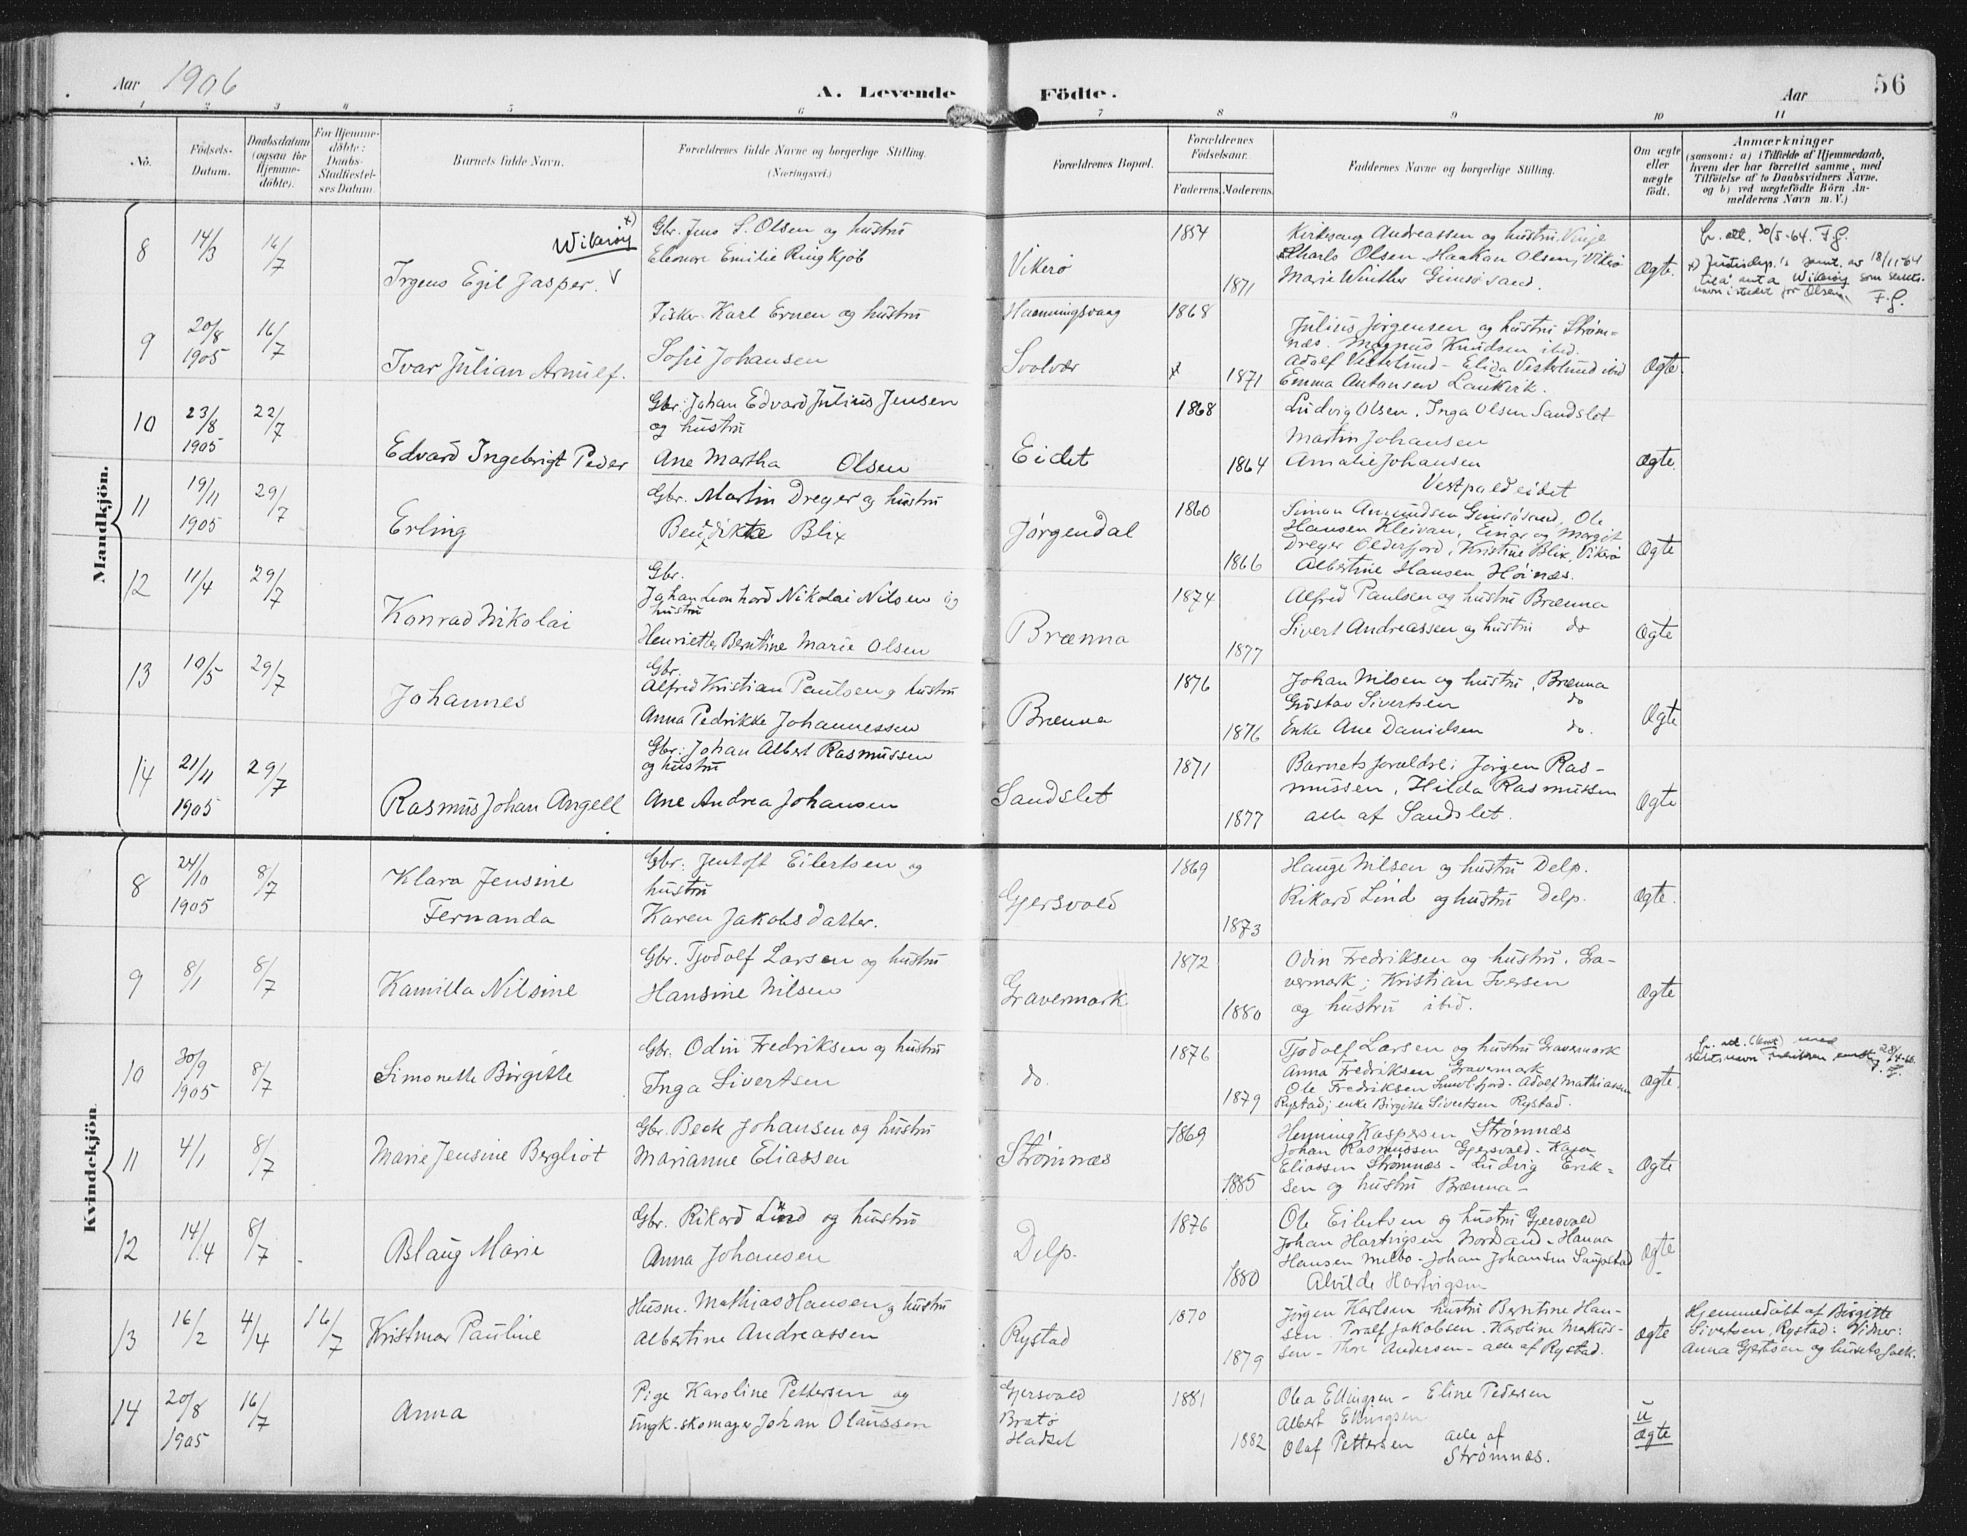 Aar 1906
A. Levende
Födte.
Aar
56
1 2 3 4 5 6 7 8 9 10 11
No.
Födsels-
Datum.
Daabsdatum
(ogsaa for
Hjemme-
döbte).
For Hjemme-
döbte:
Daabs-
Stadfæstel-
ses Datum.
Barnets fulde Navn.
Forældrenes fulde Navne og borgerlige Stilling.
(Næringsvei.)
Forældrenes Bopæl.
Forældrenes
Födselsaar.
Faderens. Moderens.
Faddernes Navne og borgerlige Stilling.
Om ægte
eller
uægte
födt.
Anmærkninger
(saasom: a) i Tilfælde af Hjemmedaab,
hvem der har forrettet samme, med
Tilföielse af to Daabsvidners Navne,
og b) ved uægtefödte Börn An-
melderens Navn m. V.)
Mandkjön.
8 14/3 16/7
Wikrøy x)
Irgens Egil Jasper.
Gbr. Jens S. Olsen og hustru
Eleonore Emilie Ringkjøb
Vikerø
1854
1871
Kirkesang. Andreassen og hustru Vinje
Charlo Olsen - Haakon Olsen, Vikerø
Marie Winther Gimsøsand.
Ægte.
fr. att. 30/5-64. F.G.
x) Justisdep.'s samt. av 18/11-64
til å anta Wikrøy som slekts-
navn istedet for Olsen.
F.G.
9 20/8 1905 16/7
Ivar Julian Arnulf.
Fisker Karl Ernen og hustru
Sofie Johansen
Hanningsvaag
Svolvær
1868
x 1871
Julius Jørgensen og hustru Strøm-
næs. Magnus Knudsen ibid.
Adolf Vesterlund - Elida Vesterlund ibid
Emma Antonsen Laukvik.
Ægte.
10 23/8 1905 22/7
Edvard Ingebrigt Peder
Gbr: Johan Edvard Julius Jensen
og hustru
Ane Martha Olsen
Eidet
1868
1864
Ludvig Olsen. Inga Olsen Sandslot
Martin Johansen
Amalie Johansen
Vestpoldeidet
Ægte.
11 19/11 1905 29/7
Erling
Gbr. Martin Dreyer og hustru
Bendikte Blix
Jørgendal
1860
1866
Simon Amundsen Gimsøsand, Ole
Hansen Kleivan, Einar og Margit
Dreyer Olderfjord, Kristine Blix, Vikerø
Albertine Hansen, Høinæs.
Ægte
12 11/4 29/7
Konrad Nikolai
Gbr.
Johan Leonhard Nikolai Nilsen og
hustru
Henriette Berntine Marie Olsen
Brænna
1874
1877
Alfred Paulsen og hustru Brænna
Sivert Andreassen og hustru do
Ægte
13 10/5 29/7
Johannes
Gbr.
Alfred Kristian Paulsen og hustru
Anna Pedrikke Johannessen
Brænna
1876
1876
Johan Nilsen og hustru, Brænna
Gustav Sivertsen do
Enke Ane Danielsen do.
Ægte
14 21/11 1905 29/7
Rasmus Johan Angell
Gbr: Johan Albert Rasmussen
og hustru
Ane Andrea Johansen
Sandslet
1871
1877
Barnets forældre; Jørgen Ras-
mussen, Hilda Rasmussen
alle af Sandslet.
Ægte
Kvindekjön.
8 24/10 1905 8/7
Klara Jensine
Fernanda
Gbr: Jentoft Eilertsen og
hustru
Karen Jakobsdatter.
Gjersvold
1869
1873
Hauge Nilsen og hustru Delp.
Rikard Lind og hustru Delp.
Ægte.
9 8/1 8/7
Kamilla Nilsine
Gbr. Tjodolf Larsen og hustru
Hansine Nilsen
Gravermark
1872
1880
Odin Fredriksen og hustru. Gra-
vermark; Kristian Iversen
og hustru ibid.
Ægte
10 30/9 1905 8/7
Simonette Birgitte
Gbr. Odin Fredriksen og hustru
Inga Sivertsen
do.
1876
1879
Tjodolf Larsen og hustru Gravermark
Anna Fredriksen Gravermark
Ole Fredriksen Sundlfjord - Adolf Mathiassen
Rystad; enke Birgitte Sivertsen Rystad.
Ægte.
fr. att. med
slektsnavn Fredriksen
11 4/1 8/7
Marie Jensine Bergliot
Gbr. Beck Johansen og hustru
Marianne Eliassen
Strømnæs
1869
1885
Henning Kaspersen Strømnæs
Johan Rasmussen Gjersvold - Kaja
Eliassen Strømnæs - Ludvig Erik-
sen og hustru Brænna -
Ægte
12 14/4 8/7
Aslaug Marie
Gbr. Rikard Lind og hustru
Anna Johansen
Delp.
1876
1880
Ole Eilertsen og hustru Gjersvold
Johan Hartvigsen Nordland - Hanna
Hansen Melbo - Johan Johansen Laupstad
Alvilde Hartvigsen
Ægte
13 16/2 4/4 16/7
Kristmar Pauline
Husm. Mathias Hansen og hustru
Albertine Andreassen
Rystad
1870
1879
Jørgen Karlsen hustru Berntine Han-
sen. Toralf Jakobsen. Karoline Markus-
sen - Thore Andersen - alle af Rystad.
Ægte
Hjemmedøbt af Birgitte
Sivertsen, Rystad: Vidner:
Anna Gjertsen og husets folk.
14 20/8 1905 16/7
Anna
Pige Karoline Pettersen og
ungk. skomager Johan Olaussen
Gjersvold
Bratø
Hadsel
1881
1882
Olea Ellingsen - Eline Pedersen
Albert Ellingsen
Olaf Pettersen alle af
Strømnæs.
u
ægte